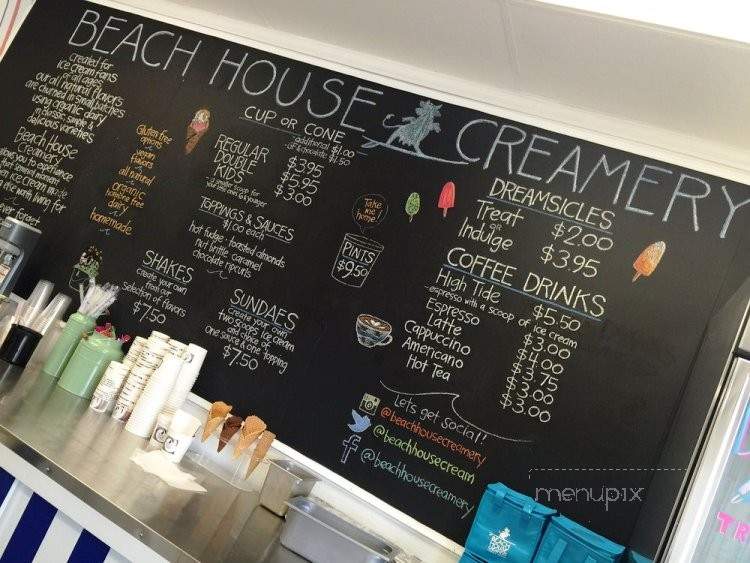 BEACH HOUSE CREAMERY
created for
ice cream fans
of all ages
our all natural flavors
are churned in small batches
using organic dairy
in classic, simple &
delicious varieties
Beach House
Creamery
allows you to experience
ice cream
are worth living for
forget
Gluten free
options
vegan
flavors
all natural
organic
hormone free
dairy
homemade
CUP OR CONE
additional $1.00
chocolate $1.50
REGULAR $3.95
DOUBLE $5.95
KIDS $3.00
smaller scoop for
TOPPINGS & SAUCES
$1.00 each
hot fudge • toasted almonds
nut brittle caramel
chocolate ripcurls
SHAKES
create your own
from our
selection of flavors
$7.50
SUNDAES
create your own
two scoops ice cream
and choice of
one sauce & one topping
$7.50
Take
me
home
PINTS
$9.50
DREAMSICLES
Treat $2.00
or
Indulge $3.95
COFFEE DRINKS
High Tide $5.50
-espresso with a scoop of ice cream
Espresso $3.00
Latte $4.00
Cappuccino $3.75
Americano $3.00
Hot Tea $3.00
Let's get social!
@beachhousecreamery
@beachhousecream
@beachhousecreamery
menupix